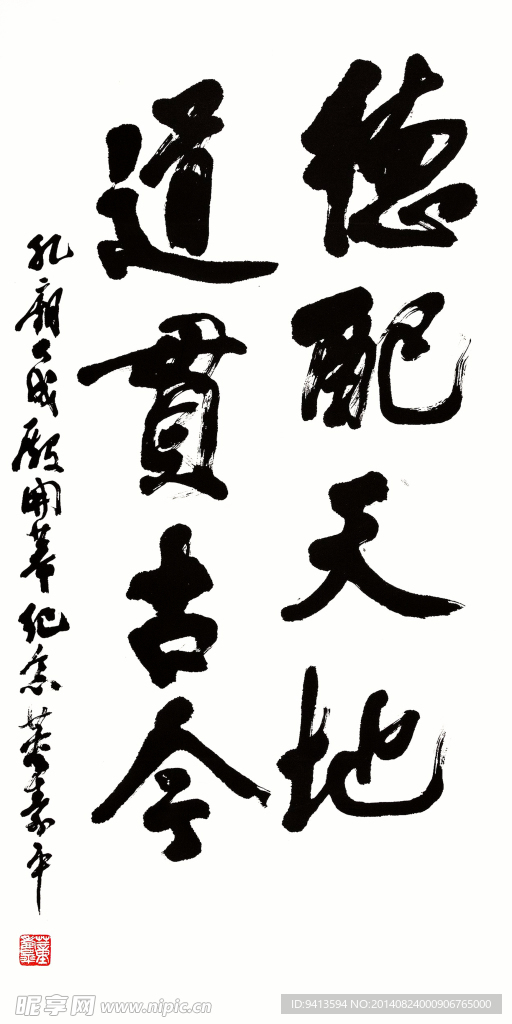 德配天地
道貫古今
孔廟大成殿開幕紀念 董壽平
昵享网 www.nipic.cn
ID:9413594 NO:20140824000906765000